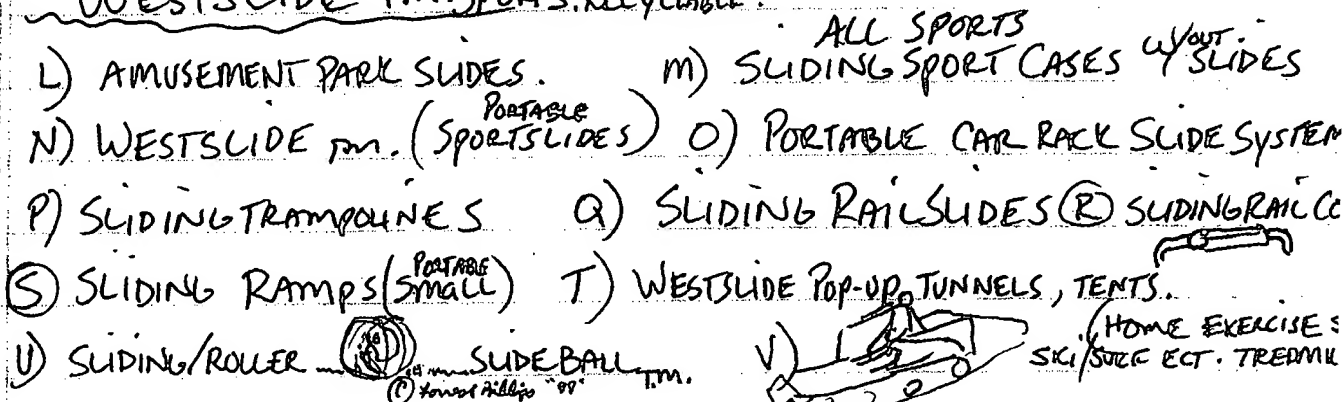 WESTSLIDE TM. SPORTS. RECYCLABLE.
ALL SPORTS
L) AMUSEMENT PARK SLIDES. M) SLIDING SPORT CASES W/OUT. SLIDES
N) WESTSLIDE TM. (PORTABLE SPORTSLIDES) O) PORTABLE CAR RACK SLIDE SYSTEM
P) SLIDING TRAMPOLINES Q) SLIDING RAILSLIDES (R) SLIDING RAIL CO
(S) SLIDING RAMPS (PORTABLE SMALL) T) WESTSLIDE POP-UP TUNNELS, TENTS.
U) SLIDING/ROLLER SLIDEBALL T.M. V) (HOME EXERCISE:
SKI/SURF ECT. TREDMIL